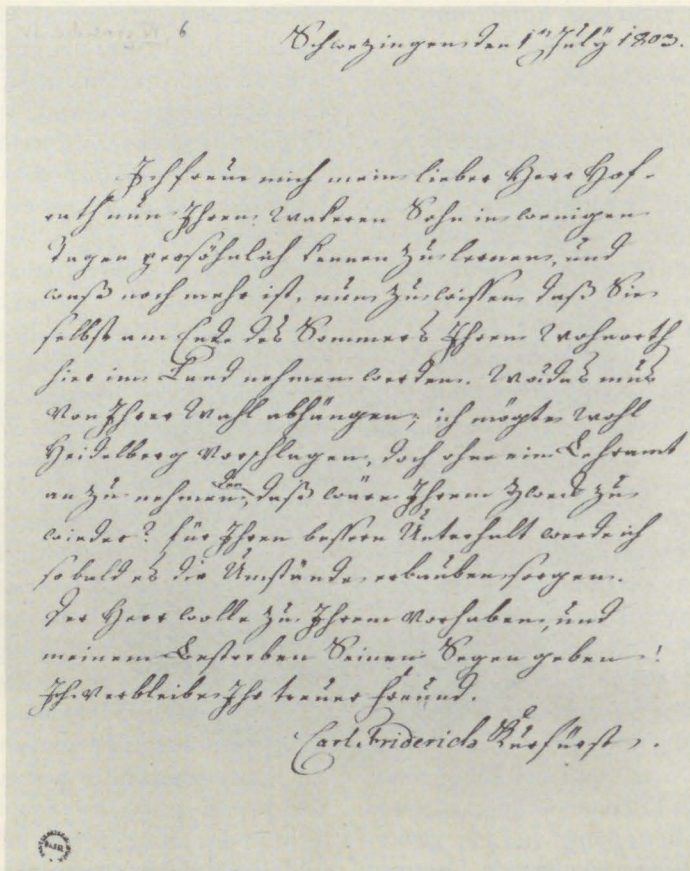 Schwezingen den 1ten July 1803.
Ich freue mich mein lieber Herr Hof-
rath nun Ihren wakeren Sohn in wenigen
Tagen persöhnlich kennen zu lernen, und
waß noch mehr ist, nun zu wissen daß Sie
selbst am Ende des Sommers Ihren Wohnorth
hier im Land nehmen werden. Wo? das mus
von Ihrer Wahl abhängen; ich mögte wohl
Heidelberg vorschlagen, doch ohne ein Lehramt
an zu nehmen, den daß wäre Ihrem Zweck zu
wieder? für Ihren bessern Unterhalt werde ich
sobald es die Umstände erlauben sorgen.
Der Herr wolle zu Ihrem Vorhaben, und
meinem Bestreben Seinen Segen geben!
Ich verbleibe Ihr treuer Freund.
Carl Friderich Kurfürst.